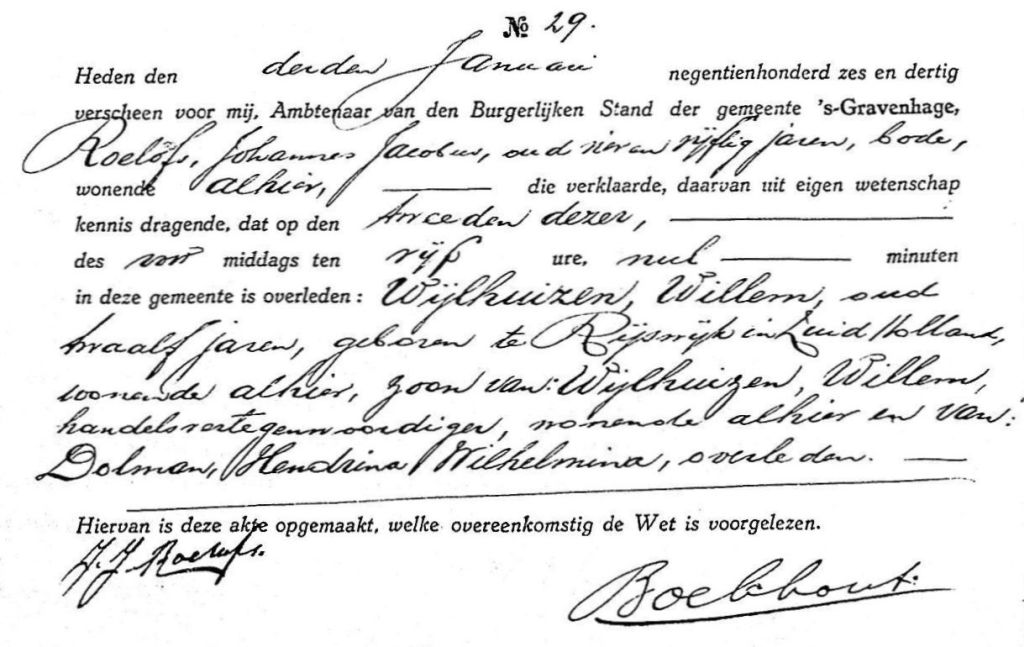 № 29.
Heden den derden Januari negentienhonderd zes en dertig
verscheen voor mij, Ambtenaar van den Burgerlijken Stand der gemeente 's-Gravenhage,
Roelofs, Johannes Jacobus, oud vier en vijftig jaren, bode,
wonende alhier, die verklaarde, daarvan uit eigen wetenschap
kennis dragende, dat op den tweeden dezer,
des voor middags ten vijf ure, nul minuten
in deze gemeente is overleden: Wijlhuizen, Willem, oud
twaalf jaren, geboren te Rijswijk in Zuid Holland,
wonende alhier, zoon van: Wijlhuizen, Willem,
handelsvertegenwoordiger, wonende alhier en van:
Dolman, Hendrina Wilhelmina, overleden.
Hiervan is deze akte opgemaakt, welke overeenkomstig de Wet is voorgelezen.
J. J. Roelofs.
Boekhout.